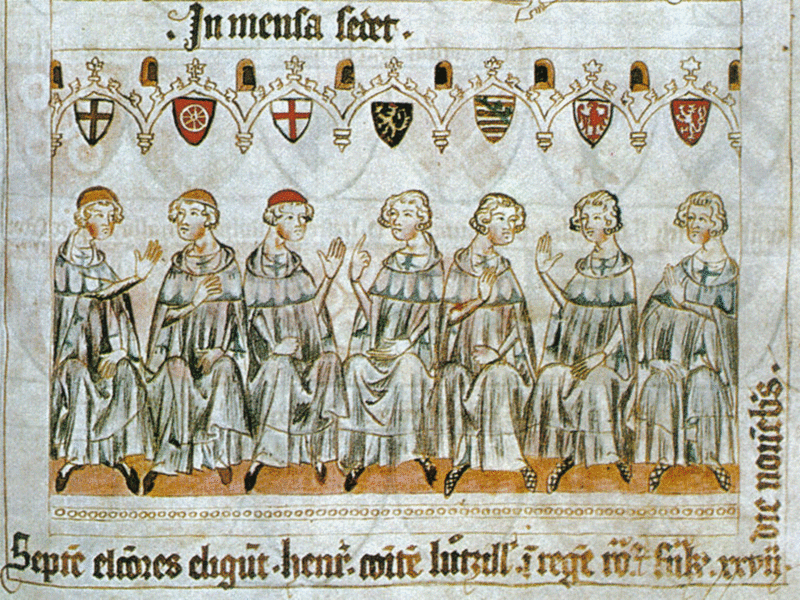 In mensa sedet.
Septē elc̄ores eligūt · henr̄ · com̄tē luczill' · ī regē ro͞m · · xxvii ·
die nouēb's ·